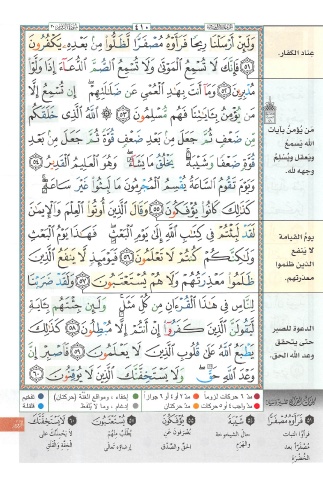 ٤١٠
وَلَئِنْ أَرْسَلْنَا رِيحًا فَرَأَوْهُ مُصْفَرًّا لَّظَلُّوا۟ مِنۢ بَعْدِهِۦ يَكْفُرُونَ
﴿٥١﴾ فَإِنَّكَ لَا تُسْمِعُ ٱلْمَوْتَىٰ وَلَا تُسْمِعُ ٱلصُّمَّ ٱلدُّعَآءَ إِذَا وَلَّوْا۟
مُدْبِرِينَ ﴿٥٢﴾ وَمَآ أَنتَ بِهَـٰدِ ٱلْعُمْىِ عَن ضَلَـٰلَتِهِمْ ۖ إِن تُسْمِعُ إِلَّا
مَن يُؤْمِنُ بِـَٔايَـٰتِنَا فَهُم مُّسْلِمُونَ ﴿٥٣﴾ ۞ ٱللَّهُ ٱلَّذِى خَلَقَكُم
مِّن ضَعْفٍ ثُمَّ جَعَلَ مِنۢ بَعْدِ ضَعْفٍ قُوَّةً ثُمَّ جَعَلَ مِنۢ بَعْدِ
قُوَّةٍ ضَعْفًا وَشَيْبَةً ۚ يَخْلُقُ مَا يَشَآءُ ۖ وَهُوَ ٱلْعَلِيمُ ٱلْقَدِيرُ ﴿٥٤﴾
وَيَوْمَ تَقُومُ ٱلسَّاعَةُ يُقْسِمُ ٱلْمُجْرِمُونَ مَا لَبِثُوا۟ غَيْرَ سَاعَةٍ ۚ
كَذَٰلِكَ كَانُوا۟ يُؤْفَكُونَ ﴿٥٥﴾ وَقَالَ ٱلَّذِينَ أُوتُوا۟ ٱلْعِلْمَ وَٱلْإِيمَـٰنَ
لَقَدْ لَبِثْتُمْ فِى كِتَـٰبِ ٱللَّهِ إِلَىٰ يَوْمِ ٱلْبَعْثِ ۖ فَهَـٰذَا يَوْمُ ٱلْبَعْثِ
وَلَـٰكِنَّكُمْ كُنتُمْ لَا تَعْلَمُونَ ﴿٥٦﴾ فَيَوْمَئِذٍ لَّا يَنفَعُ ٱلَّذِينَ
ظَلَمُوا۟ مَعْذِرَتُهُمْ وَلَا هُمْ يُسْتَعْتَبُونَ ﴿٥٧﴾ وَلَقَدْ ضَرَبْنَا
لِلنَّاسِ فِى هَـٰذَا ٱلْقُرْءَانِ مِن كُلِّ مَثَلٍ ۚ وَلَئِن جِئْتَهُم بِـَٔايَةٍ
لَّيَقُولَنَّ ٱلَّذِينَ كَفَرُوٓا۟ إِنْ أَنتُمْ إِلَّا مُبْطِلُونَ ﴿٥٨﴾ كَذَٰلِكَ
يَطْبَعُ ٱللَّهُ عَلَىٰ قُلُوبِ ٱلَّذِينَ لَا يَعْلَمُونَ ﴿٥٩﴾ فَٱصْبِرْ إِنَّ
وَعْدَ ٱللَّهِ حَقٌّ ۖ وَلَا يَسْتَخِفَّنَّكَ ٱلَّذِينَ لَا يُوقِنُونَ ﴿٦٠﴾
عناد الكفار.
مَن يُؤْمِنُ بآيات
الله يَسمعُ
ويعقل ويُسْلِمُ
وجهه لله.
يومُ القيامة
لا ينفع
الذين ظلموا
معذرتهم.
الدعوة للصبر
حتى يتحقق
وعد الله الحق.
مدّ ٦ حركات لزوماً
مدّ ٢ أو ٤ أو ٦ جوازاً
إخفاء، ومواقع الغُنَّة (حركتان)
تفخيم
مدّ واجب ٤ أو ٥ حركات
مدّ حركتان
إدغام، وما لا يُلفظ
قلقلة
فَرَأَوْهُ مُصْفَرًّا
فرأوا النبات
مُصْفَرًّا بعد
الخُضْرَة
شَيْبَةً
حال الشيخوخة
والهَرَم
يُؤْفَكُونَ
يُصْرَفون عن
الحق والصِّدق
يُسْتَعْتَبُونَ
يُطلَبُ منهم
إرضاؤه تعالى
لَا يَسْتَخِفَّنَّكَ
لا يَحْمِلَنَّكَ على
الخِفَّة والقَلَق